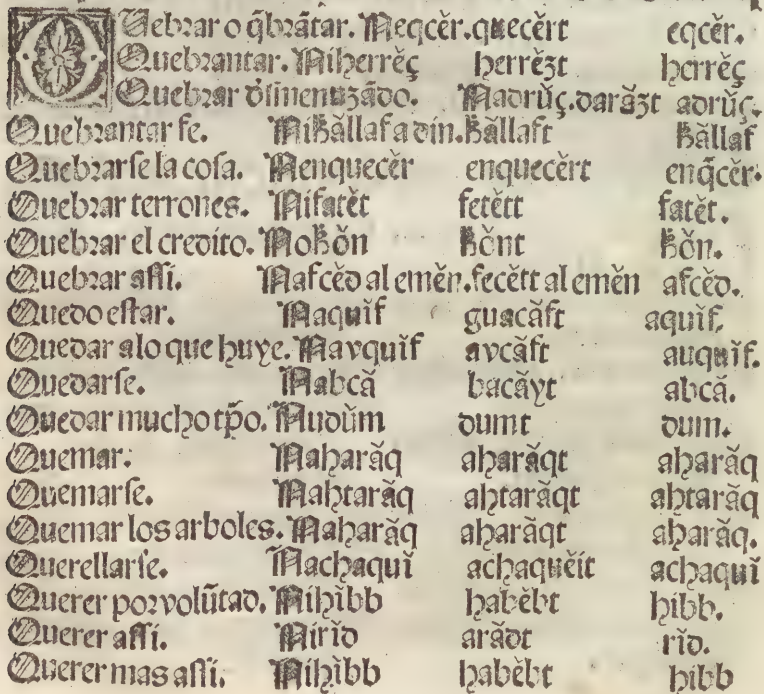 QUebrar o q̃brãtar. Neqcĕr.quecĕrt eqcĕr.
Quebrantar. Niherrĕç herrĕzt herrĕç
Quebrar dsmenuzãdo. Nadrŭç.darăzt adrŭç.
Quebrantar fe. Nikăllaf a din.kăllaft kăllaf
Quebrarſe la coſa. Nenquecĕr enquecĕrt enq̃cĕr.
Quebrar terrones. Nifatĕt fetĕtt fatĕt.
Quebrar el credito. Nokŏn kŏnt kŏn.
Quebrar aſſi. Nafcĕd al emĕn.fecĕtt al emĕn afcĕd.
Quedo eſtar. Naquĭf guacăft aquĭf.
Quedar alo que huye. Navquĭf avcăft auquĭf.
Quedarſe. Nabcă bacăyt abcă.
Quedar mucho tp̃o. Nudŭm dumt dum.
Quemar. Naharăq aharăqt aharăq
Quemarſe. Nahtarăq ahtarăqt ahtarăq
Quemar los arboles. Naharăq aharăqt aharăq.
Querellarſe. Nachaquĭ achaquĕit achaquĭ
Querer por volũtad. Nihĭbb habĕbt hibb.
Querer aſſi. Nirĭd arădt rĭd.
Querer mas aſſi. Nihĭbb habĕbt hibb